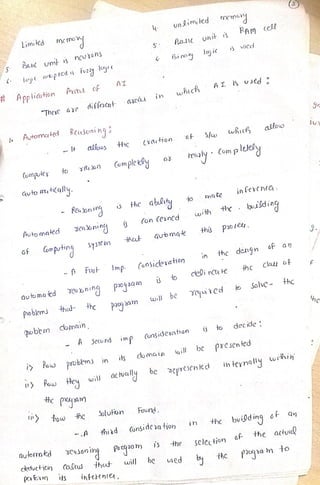 ②
Limited memory 4 unlimited memory
5 Basic unit is neurons 5. Basic unit is RAM cell
6. logic is fuzzy logic 6 Binary logic is used
# Application Areas of AI
There are different areas in which AI is used :
Automated Reasoning :
- It allows the creation of s/w which allow
Computer to reason completely or nearly-completely
automatically.
- Reasoning is the ability to make inference.
Automated reasoning is concerned with the building
of Computing system that automate this process.
- A First Imp. Consideration in the design of an
automated reasoning program is to delineate the class of
problems that the program will be required to solve - the
problem domain.
- A second imp consideration is to decide :
i> How problems in its domain will be presented
ii> How they will actually be represented internally within
the program
iii> How the solution Found.
- A third consideration in the building of an
automated reasoning program is the selection of the actual
deduction that will be used by the program to
perform its inference.